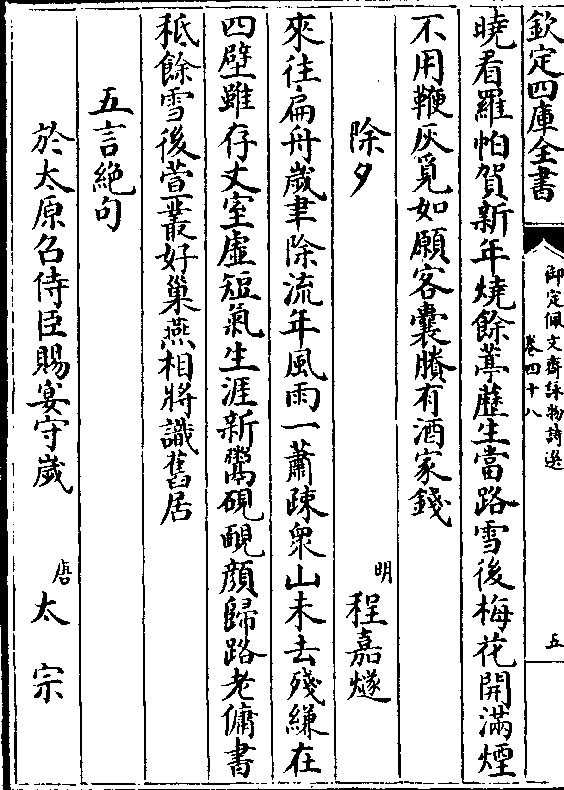 欽定四庫全書
御定佩文齋詠物詩選
卷四十八
五
曉看羅帕賀新年燒餘藁薶生當路雪後梅花開滿煙
不用鞭灰覓如願客囊賸有酒家錢
除夕
明程嘉燧
來往扁舟歲聿除流年風雨一蕭疎衆山未去殘縑在
四壁雖存丈室虛短氣生涯新鬻硯靦顔歸路老傭書
秪餘雪後萱叢好巢燕相將識舊居
五言絶句
於太原召侍臣賜宴守歲
唐太宗